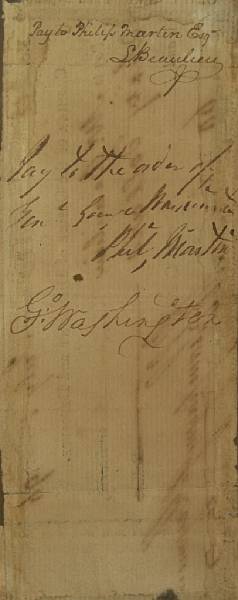 Pay to Philip Martin Esqr
L Beaulieu
Pay to the order of
Genl George Washington
Phil, Martin
Go Washington